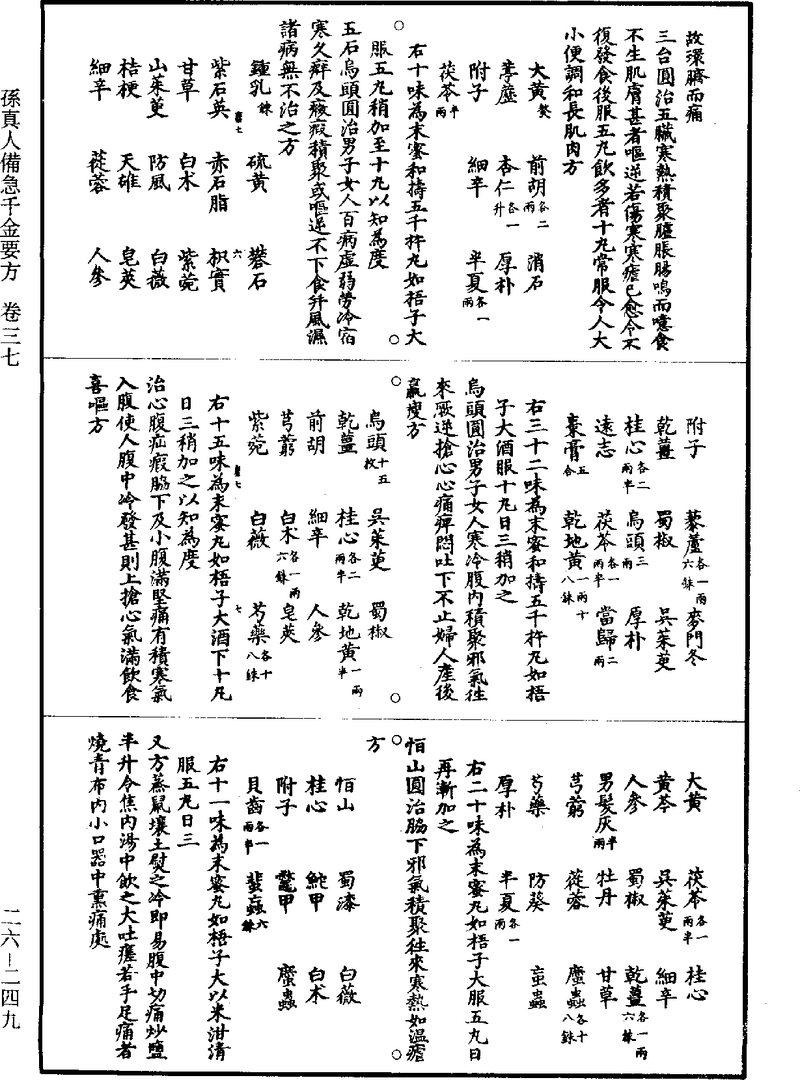 故還臍而痛
三台圓治五臟寒熱積聚臚脹腸鳴而噫食
不生肌膚甚者嘔逆若傷寒寒瘧已愈令不
復發食後服五丸飲多者十丸常服令人大
小便調和長肌肉方
大黃熬 前胡各二兩 消石
葶藶 杏仁各一升 厚朴
附子 細辛 半夏各一兩
茯苓半兩
右十味為末蜜和擣五千杵丸如梧子大
服五丸稍加至十丸以知為度
五石烏頭圓治男子女人百病虛弱勞冷宿
寒久癖及癥瘕積聚或嘔逆不下食并風濕
諸病無不治之方
鍾乳銖 硫黃 礬石
紫石英 赤石脂 枳實
甘草 白朮 紫菀
山茱萸 防風 白薇
桔梗 天雄 皂莢
細辛 蓯蓉 人參
附子 藜蘆各一兩六銖 麥門冬
乾薑 蜀椒 吳茱萸
桂心各二兩半 烏頭三兩 厚朴
遠志 茯苓各一兩半 當歸二兩
棗膏五合 乾地黃一兩十八銖
右三十二味為末蜜和擣五千杵丸如梧
子大酒服十丸日三稍加之
烏頭圓治男子女人寒冷腹內積聚邪氣往
來厥逆搶心心痛痺悶吐下不止婦人產後
羸瘦方
烏頭十五枚 吳茱萸 蜀椒
乾薑 桂心各二兩半 乾地黃一兩半
前胡 細辛 人參
芎藭 白朮各一兩六銖 皂莢
紫菀 白薇 芍藥各十八銖
右十五味為末蜜丸如梧子大酒下十丸
日三稍加之以知為度
治心腹疝瘕脇下及小腹滿堅痛有積寒氣
入腹使人腹中冷發甚則上搶心氣滿飲食
喜嘔方
大黃 茯苓各一兩半 桂心
黃芩 吳茱萸 細辛
人參 蜀椒 乾薑各一兩六銖
男髮灰半兩 牡丹 甘草
芎藭 蓯蓉 䗪蟲各十八銖
芍藥 防葵 虻蟲
厚朴 半夏各一兩
右二十味為末蜜丸如梧子大服五丸日
再漸加之
恒山圓治脇下邪氣積聚往來寒熱如溫瘧
方
恒山 蜀漆 白薇
桂心 鮀甲 白朮
附子 鱉甲 䗪蟲
貝齒各一兩半 蜚蝱六銖
右十一味為末蜜丸如梧子大以米泔清
服五丸日三
又方蒸鼠壤土熨之冷即易腹中切痛炒鹽
半升令焦內湯中飲之大吐瘥若手足痛者
燒青布內小口器中熏痛處
孫真人備急千金要方 卷三七
二六－二四九